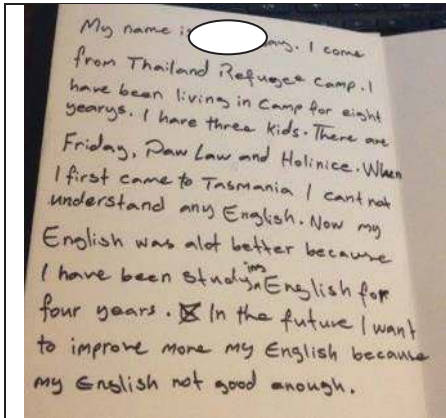 My name is ay. I come
from Thailand Refugee camp. I
have been living in camp for eight
yearys. I hare three kids. There are
Friday, Daw Law and Holinice. When
I first came to Tasmania I cant not
understand any English. Now my
English was alot better because
I have been studying English for
four years. In the future I want
to improve more my English because
my English not good enough.